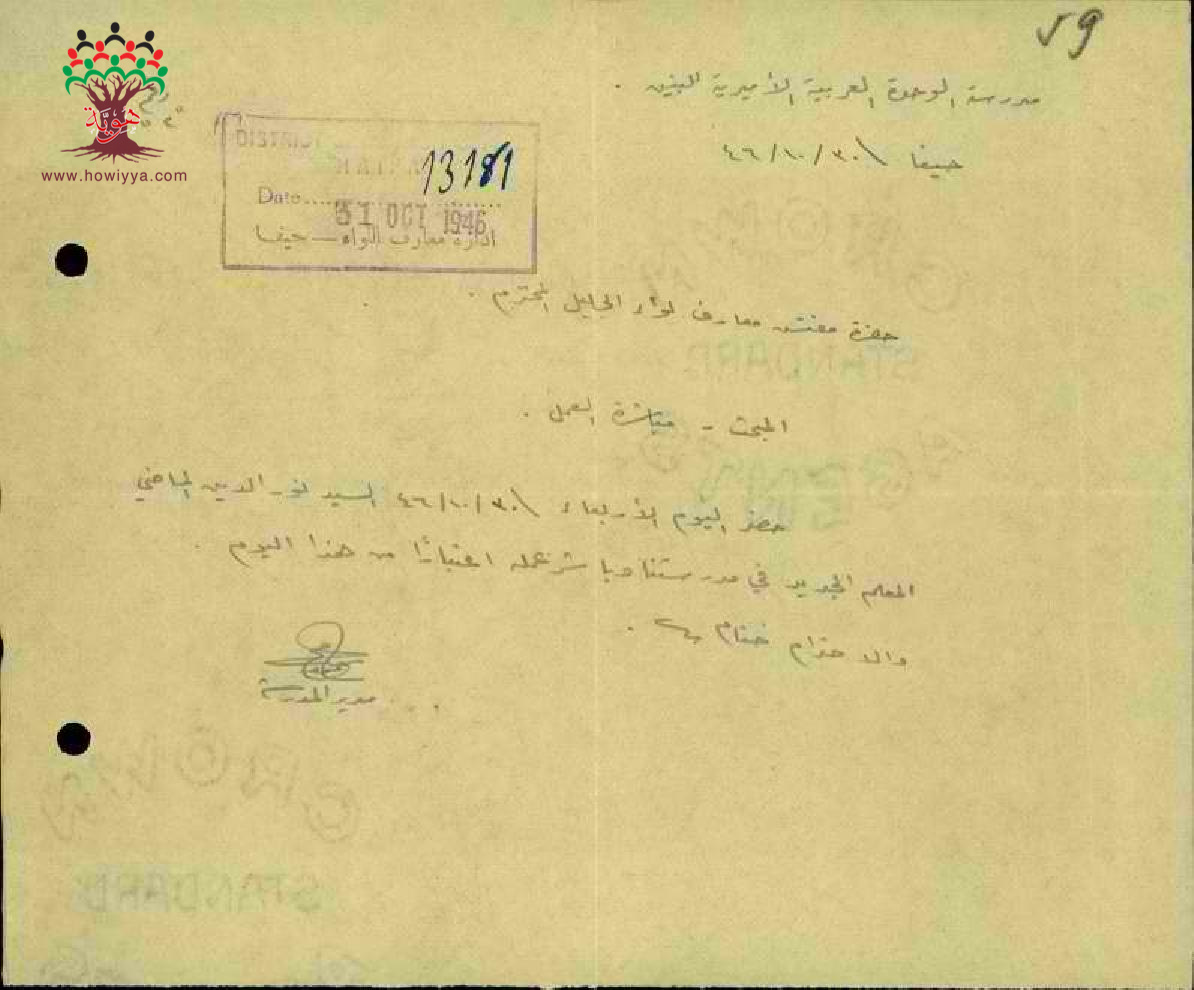 59
هوية
www.howiyya.com
مدرسة الوحدة العربية الأميرية للبنين .
حيفا ٤٦/١٠/٣٠
DISTRICT
HAIFA
13181
Date 31 OCT 1946
ادارة معارف اللواء — حيفا
حضرة مفتش معارف لواء الجليل المحترم .
المبحث - مباشرة العمل .
حضر اليوم الأربعاء ٤٦/١٠/٣٠ السيد نور الدين الماضي
المعلم الجديد في مدرستنا وباشر عمله اعتبارًا من هذا اليوم .
والاحترام ختام .
مدير المدرسة
CROWN
STANDARD
CROWN
STANDARD